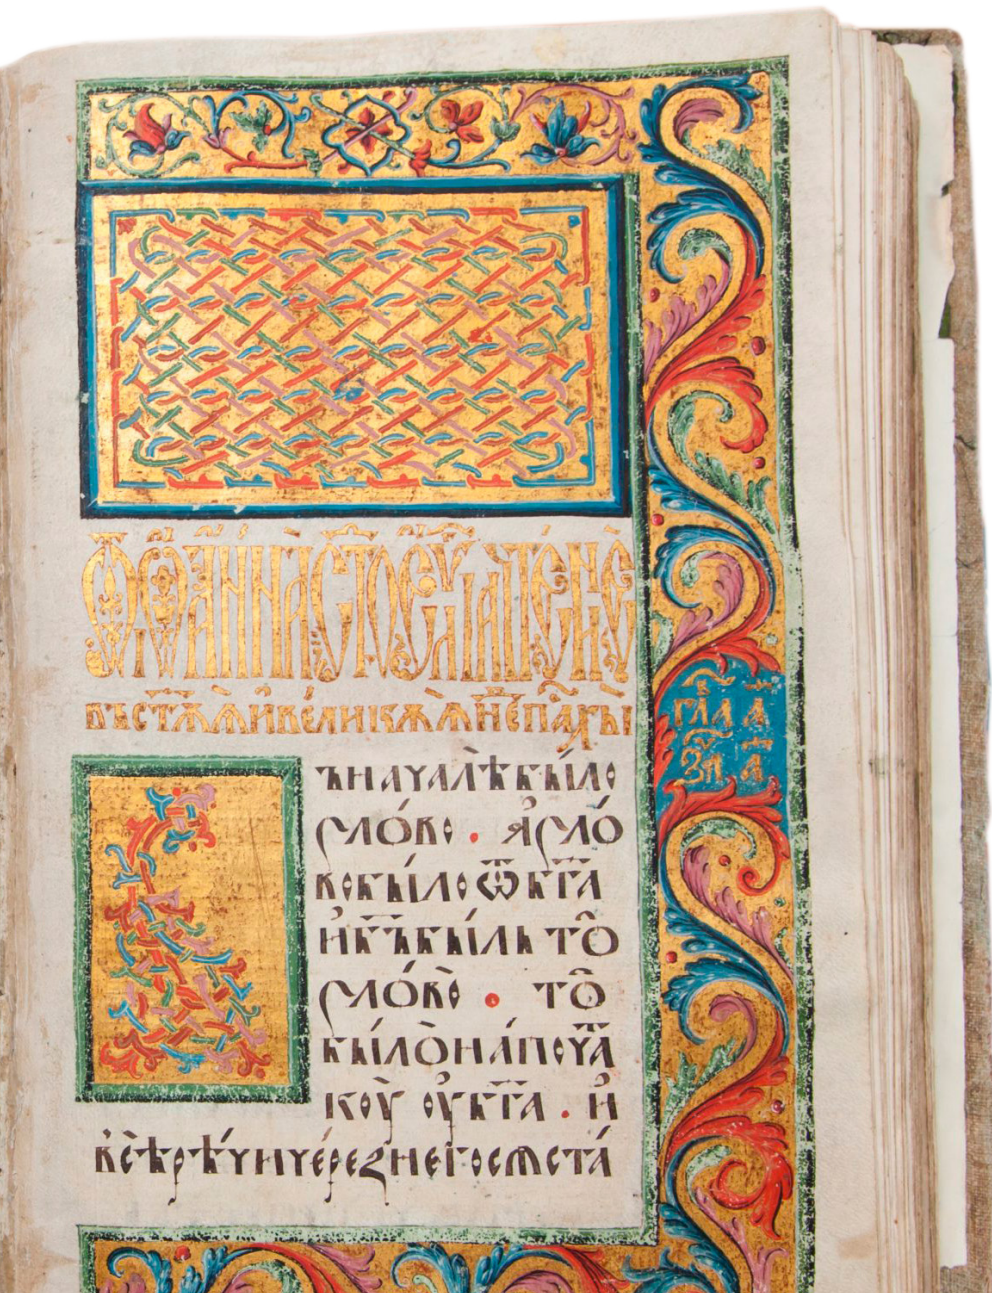 Ѿ ІѠАННА СТ҃ОЕ ЕѴ҃ЛІА ЧТЕНЕ
въ ст҃ѫѫ и великѫѫ н҃е па҃хы
гла҃ а҃
за҃ а҃
В ъначалѣ было
сло́во · а сло́
во было ѿ бг҃а
и҆ бг҃ъ бы́ль то̑
сло́во · то̑
бы́ло на́поча
ку̀ оу҆ бг҃а · и҆
всѣ рѣ́чи че́резнего сѧ ста́